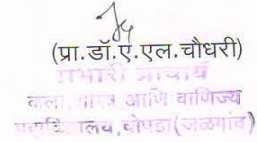 (प्रा.डॉ.ए.एल.चौधरी)
प्रभारी प्राचार्य
कला,शास्त्र आणि वाणिज्य
महाविद्यालय,चोपडा(जळगांव)